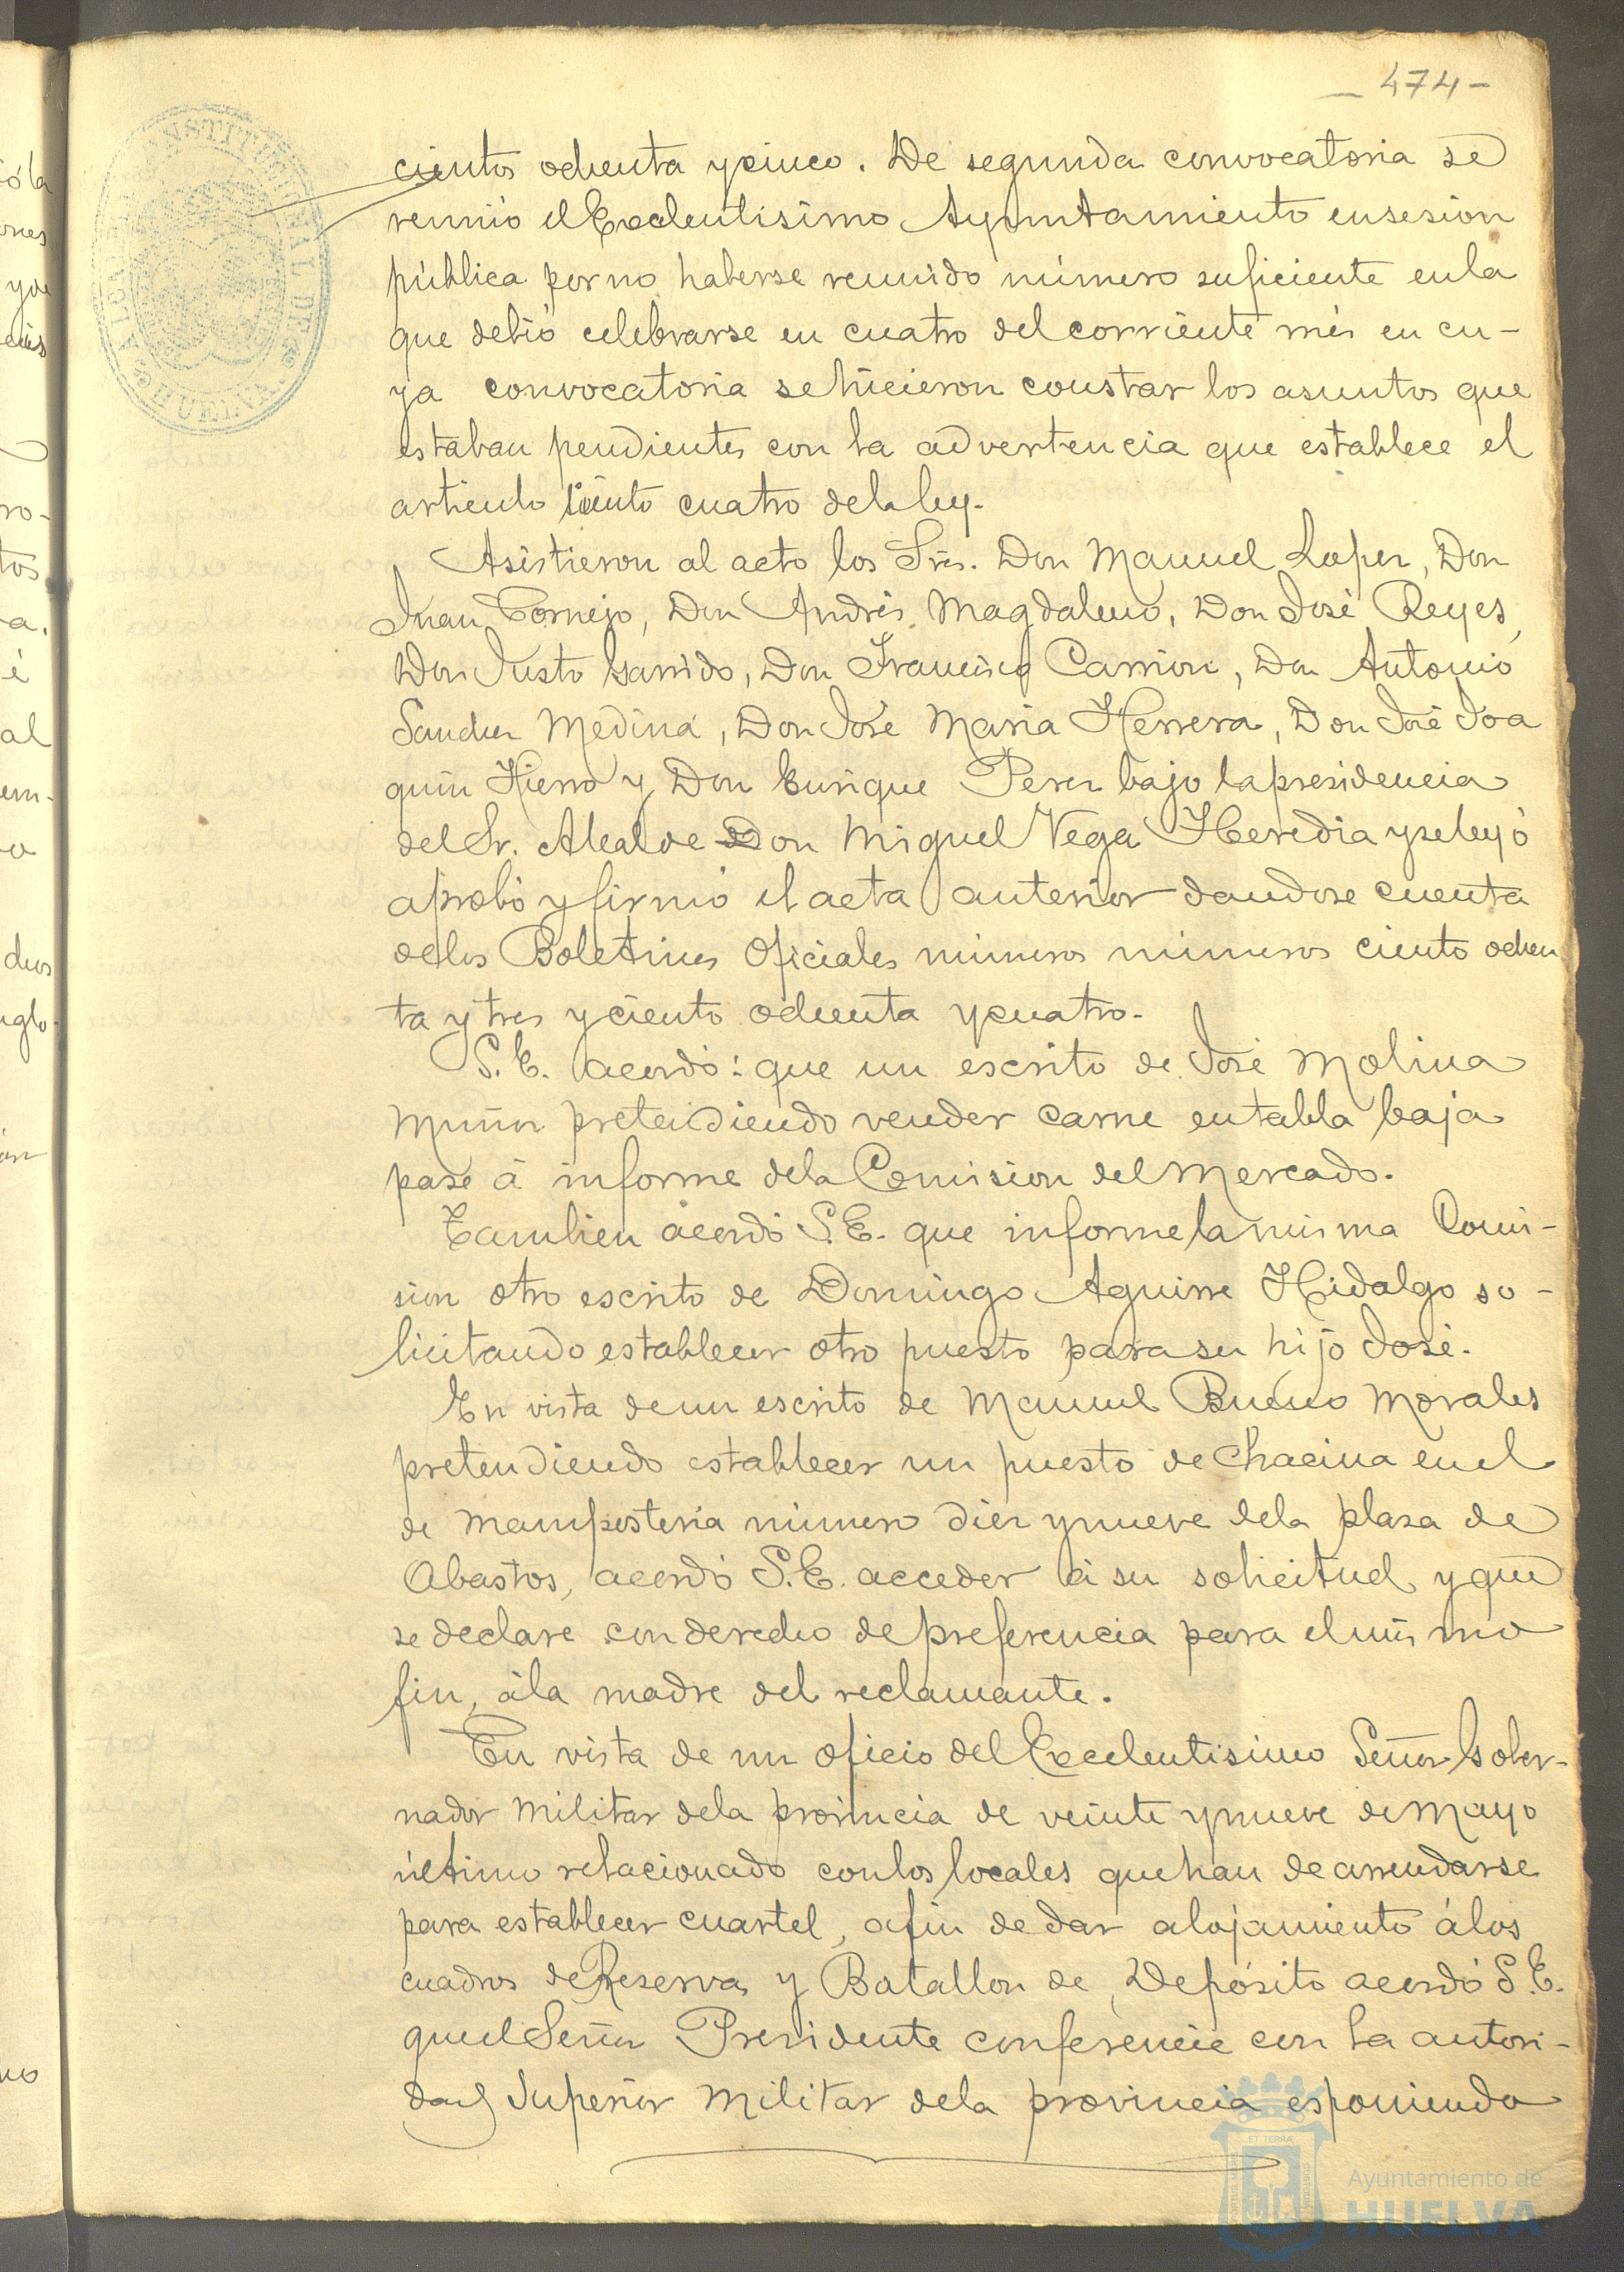 - 474 -
cientos ochenta y cinco. De segunda convocatoria se
reunió el Excelentisimo Ayuntamiento en sesion
pública por no haberse reunido número suficiente en la
que debió celebrarse en cuatro del corriente més en cu-
ya convocatoria se hicieron constar los asuntos que
estaban pendientes con la advertencia que establece el
articulo ciento cuatro de la ley.
Asistieron al acto los Sres. Don Manuel Lopez, Don
Juan Cornejo, Don Andrés Magdaleno, Don José Reyes,
Don Justo Garrido, Don Francisco Carrion, Don Antonio
Sanchez Medina, Don José Maria Herrera, Don José Joa
quin Hierro y Don Enrique Perez bajo la presidencia
del Sr. Alcalde Don Miguel Vega Heredia y se leyó
aprobó y firmó el acta anterior dandose cuenta
de los Boletines Oficiales números números ciento ochen
ta y tres y ciento ochenta y cuatro.
S.E. acordó: que un escrito de José Molina
Muñoz pretendiendo vender carne en tabla baja
pase á informe de la Comision del Mercado.
Tambien acordó S.E. que informe la misma Comi-
sion otro escrito de Domingo Aguirre Hidalgo so-
licitando establecer otro puesto para su hijo José.
En vista de un escrito de Manuel Bueno Morales
pretendiendo establecer un puesto de chacina en el
de mamposteria número diez y nueve de la plaza de
Abastos, acordó S.E. acceder á su solicitud y que
se declare con derecho de preferencia para el mismo
fin, á la madre del reclamante.
En vista de un oficio del Excelentisimo Señor Gober-
nador Militar de la provincia de veinte y nueve de Mayo
último relacionado con los locales que han de arrendarse
para establecer cuartel, a fin de dar alojamiento á los
cuadros de Reserva y Batallon de Depósito acordó S.E.
que el Señor Presidente conferencie con la autori-
dad Superior Militar de la provincia esponiendo
ALCALDIA CONSTITUCIONAL DE
HUELVA
Ayuntamiento de
HUELVA